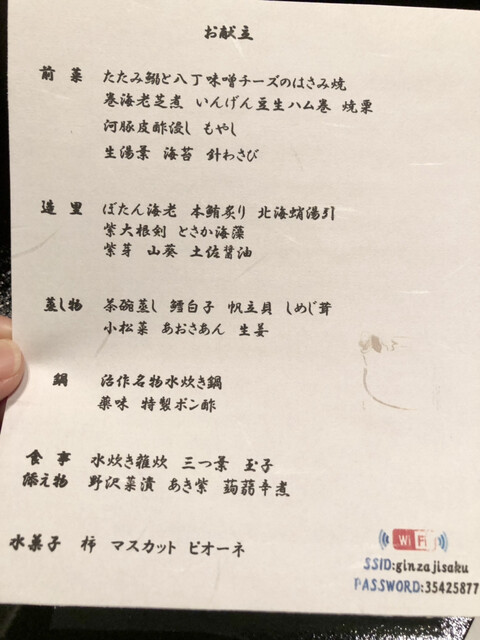 お献立
前菜 たたみ鰯と八丁味噌チーズのはさみ焼
巻海老芝煮 いんげん豆生ハム巻 焼栗
河豚皮酢浸し もやし
生湯葉 海苔 針わさび
造里 ぼたん海老 本鮪炙り 北海蛸湯引
紫大根剣 とさか海藻
紫芽 山葵 土佐醤油
蒸し物 茶碗蒸し 鱈白子 帆立貝 しめじ茸
小松菜 あおさあん 生姜
鍋 治作名物水炊き鍋
薬味 特製ポン酢
食事 水炊き雑炊 三つ葉 玉子
添え物 野沢菜漬 あき紫 蒟蒻辛煮
水菓子 柿 マスカット ピオーネ
Wi Fi
SSID:ginzajisaku
PASSWORD:35425877